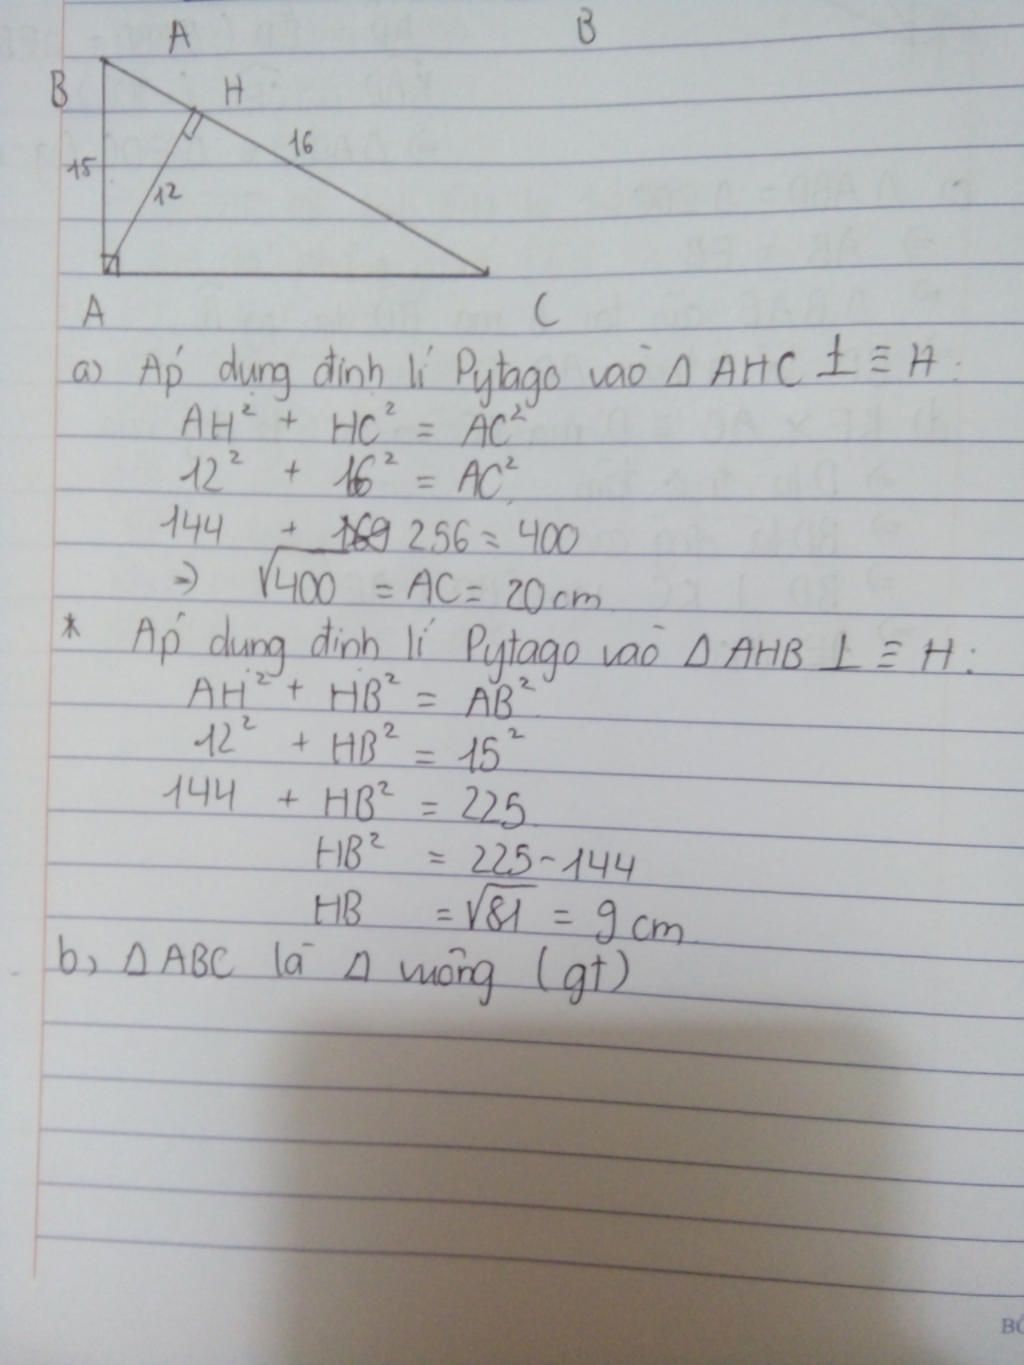 A B
B H
16
15
12
A C
a) Áp dụng định lí Pytago vào Δ AHC ⊥ ≡ H:
AH² + HC² = AC²
12² + 16² = AC²
144 + 256 = 400
=> √400 = AC = 20cm
* Áp dụng định lí Pytago vào Δ AHB ⊥ ≡ H:
AH² + HB² = AB²
12² + HB² = 15²
144 + HB² = 225
HB² = 225 - 144
HB = √81 = 9 cm
b, Δ ABC là Δ vuông (gt)